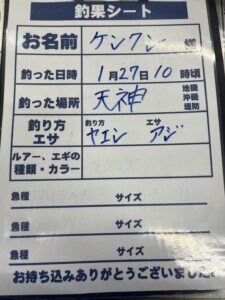 釣果シート
お名前 ケンケン 様
釣った日時 1月27日10時頃
釣った場所 天神 地磯 沖磯 堤防
釣り方 エサ 釣り方 ヤエン エサ アジ
ルアー、エギの種類・カラー
魚種 サイズ
魚種 サイズ
魚種 サイズ
お持ち込みありがとうございました。